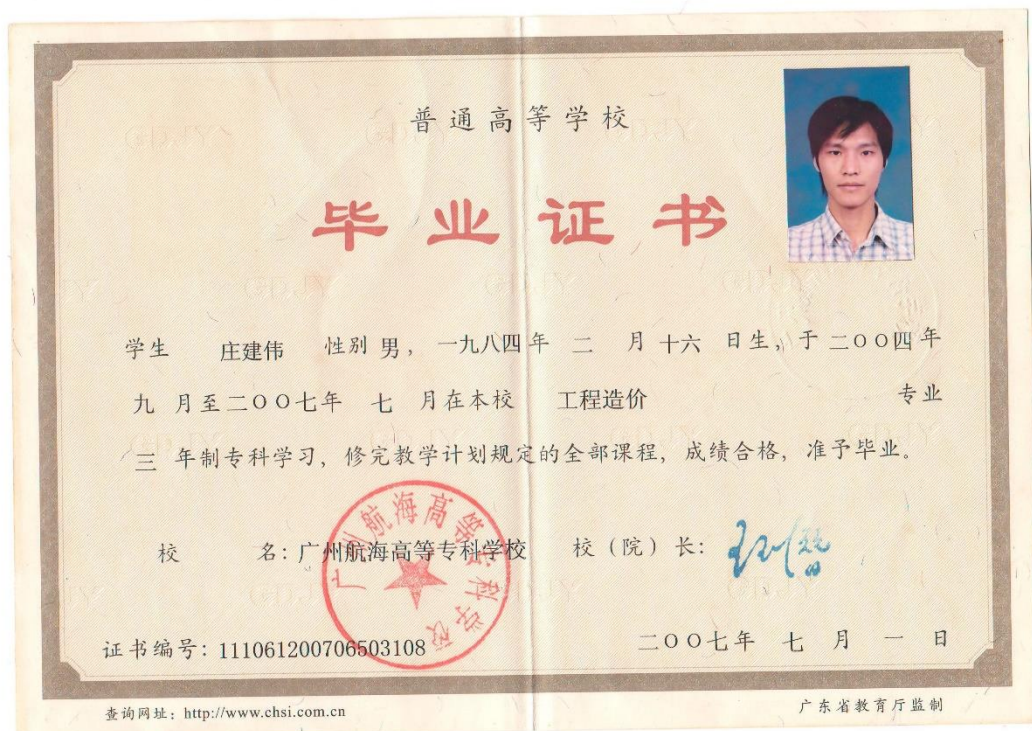 普通高等学校
毕业证书
学生 庄建伟 性别 男，一九八四年 二 月 十六 日生，于 二〇〇四年
九 月至二〇〇七年 七 月在本校 工程造价 专业
三 年制专科学习，修完教学计划规定的全部课程，成绩合格，准予毕业。
校 名：广州航海高等专科学校 校（院）长：
广州航海高等专科学校
证书编号：111061200706503108 二〇〇七年 七 月 一 日
查询网址：http://www.chsi.com.cn 广东省教育厅监制